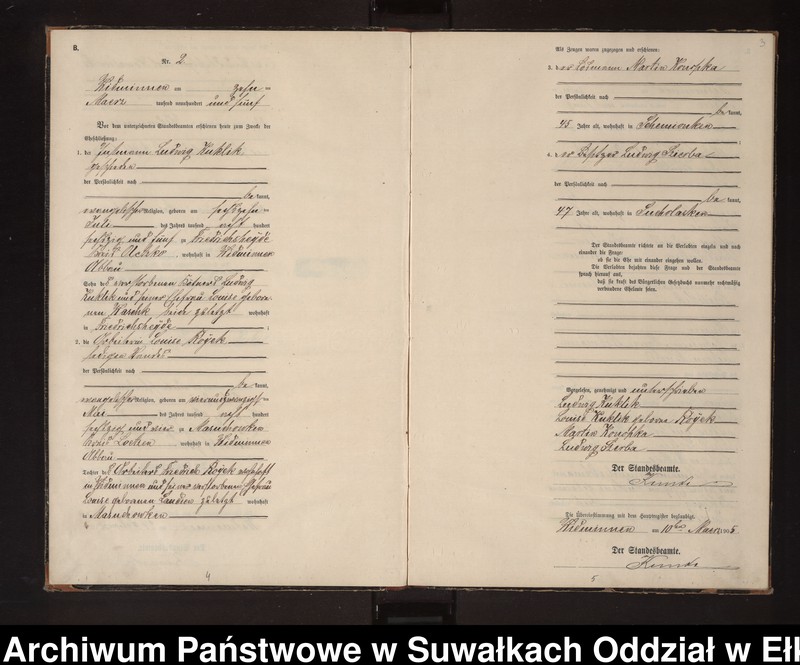 B.
Nr. 2
Widminnen am zehn
Maerz tausend neunhundert und fünf
Vor dem unterzeichneten Standesbeamten erschienen heute zum Zweck der
Eheschließung:
1. der Instmann Ludwig Kuklik
geschieden
der Persönlichkeit nach
be kannt,
evangelischer Religion, geboren am sechszehn
Juli des Jahres tausend acht hundert
sechszig und fünf in Friedrichsheyde
Kreis Oletzko, wohnhaft in Widminnen
Abbau
Sohn des verstorbenen Ludwig
Kuklik und seiner Ehefrau Louise gebore
nen beide zuletzt wohnhaft
in Friedrichsheyde ;
2. die Arbeiterin Louise Royek
ledigen Standes
der Persönlichkeit nach
be kannt,
evangelischer Religion, geboren am vierundzwanzigsten
Mai des Jahres tausend acht hundert
sechszig und vier in Masuchowken
Kreis Loetzen, wohnhaft in Widminnen
Abbau
Tochter des Arbeiters Friedrich Royek wohnhaft
in Widminnen und seiner verstorbenen Ehefrau
Louise geborenen zuletzt wohnhaft
in Masuchowken
4
3
Als Zeugen waren zugezogen und erschienen:
3. der Losmann Martin Konopka
der Persönlichkeit nach
be kannt,
45 Jahre alt, wohnhaft in Schemionken
;
4. der Besitzer Ludwig Skerba
der Persönlichkeit nach
be kannt,
47 Jahre alt, wohnhaft in Sucholasken
Der Standesbeamte richtete an die Verlobten einzeln und nach
einander die Frage:
ob sie die Ehe mit einander eingehen wollen.
Die Verlobten bejahten diese Frage und der Standesbeamte
sprach hierauf aus,
daß sie kraft des Bürgerlichen Gesetzbuchs nunmehr rechtmäßig
verbundene Eheleute seien.
Vorgelesen, genehmigt und unterschrieben
Ludwig Kuklik
Louise Kuklik geborene Royek
Martin Konopka
Ludwig Skerba
Der Standesbeamte.
Die Übereinstimmung mit dem Hauptregister beglaubigt.
Widminnen am 10ten Maerz 1905
Der Standesbeamte.
5
Archiwum Państwowe w Suwałkach Oddział w Ełk